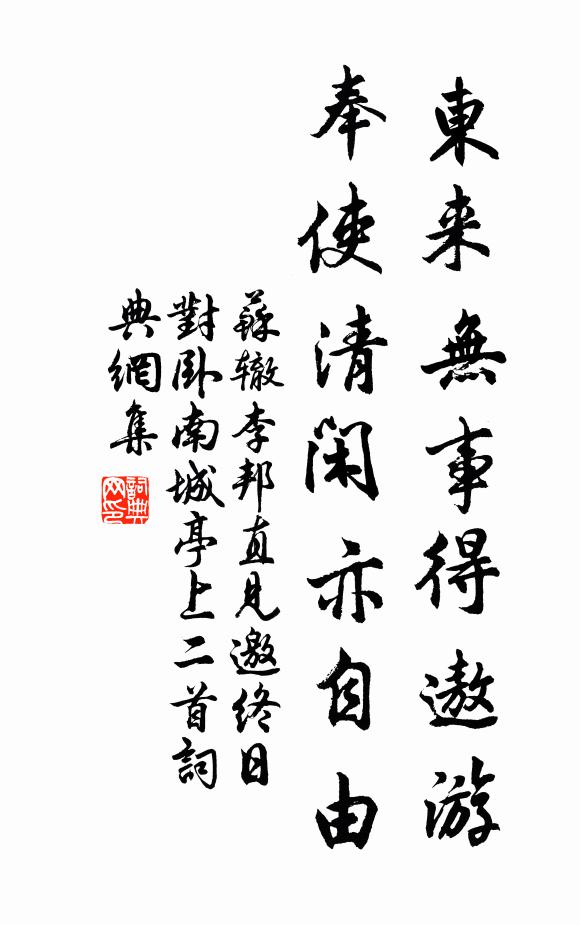 東来無事得遨游
奉使清閑亦自由
蘇辙李邦直見邀終日
對卧南城亭上二首詞
典網集
詞典
网印